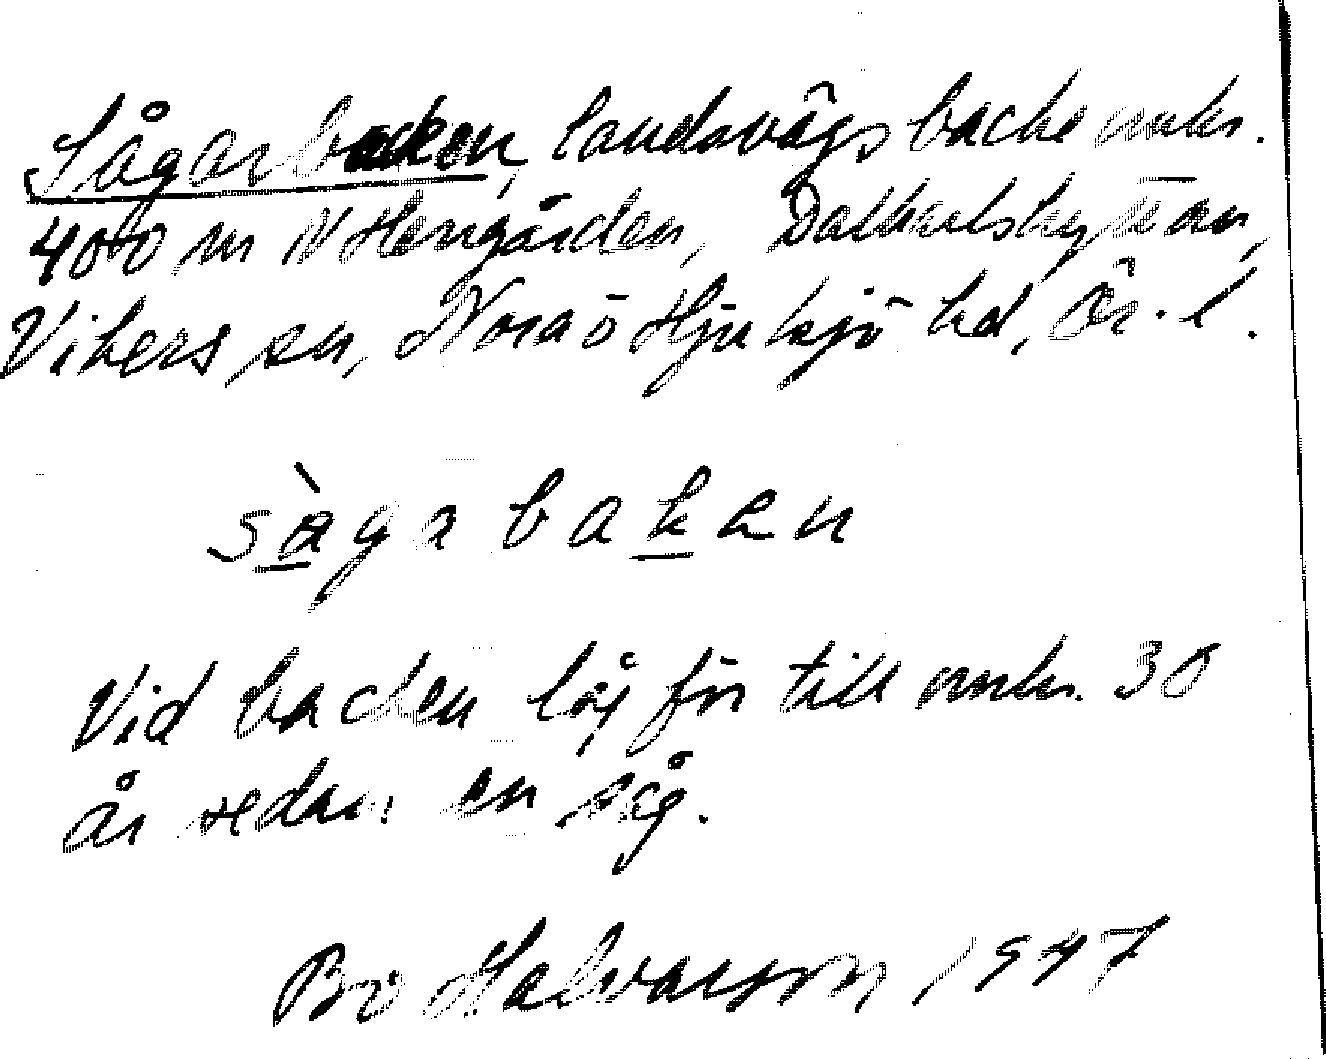 Sågarbacken, landsvägsbacke omkr.
400 m N Herrgården, Dalkarlshyttan,
Vikers sn, Nora o Hjulsjö hd, Ör. l.
sàgabakan
Vid backen låg för till omkr. 30
år sedan en såg.
Bo Halvarson, 1947